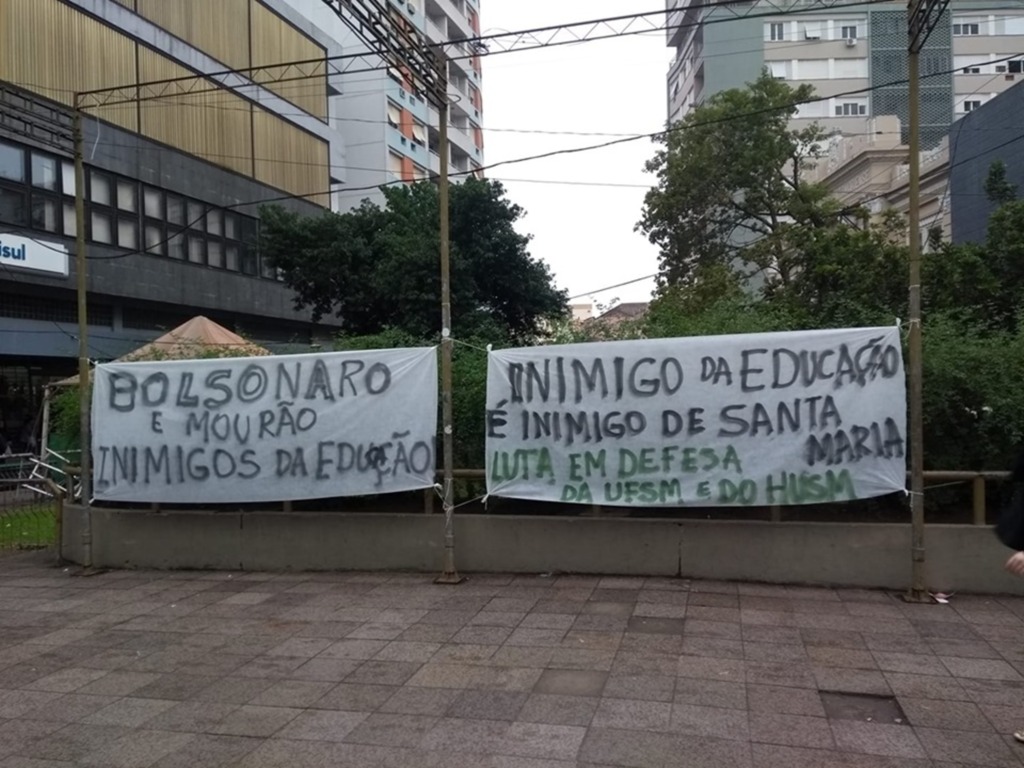 isul
BOLSONARO
E MOURÃO
INIMIGOS DA EDUCAÇÃO!
INIMIGO DA EDUCAÇÃO
É INIMIGO DE SANTA
MARIA
LUTA EM DEFESA
DA UFSM E DO HUSM